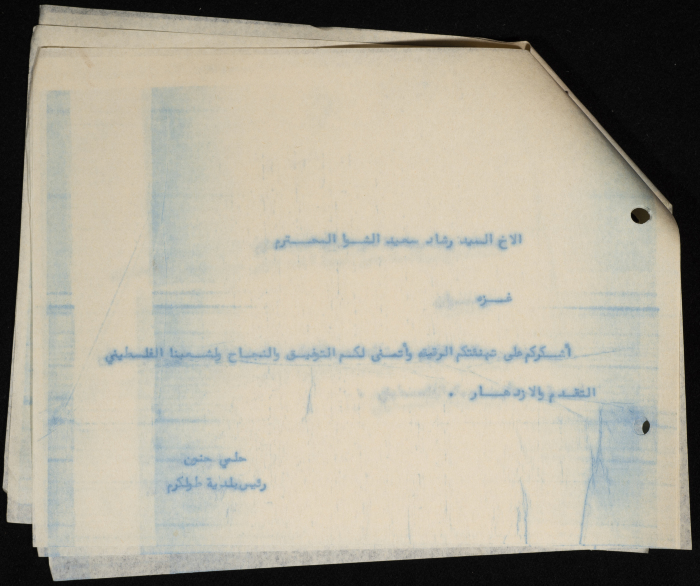 الاخ السيد رشاد سعيد الشوا المحترم
غزة
أشكركم على تهنئتكم الرقيقة وأتمنى لكم التوفيق والنجاح ولشعبنا الفلسطيني
التقدم والازدهار .
حلمي حنون
رئيس بلدية طولكرم